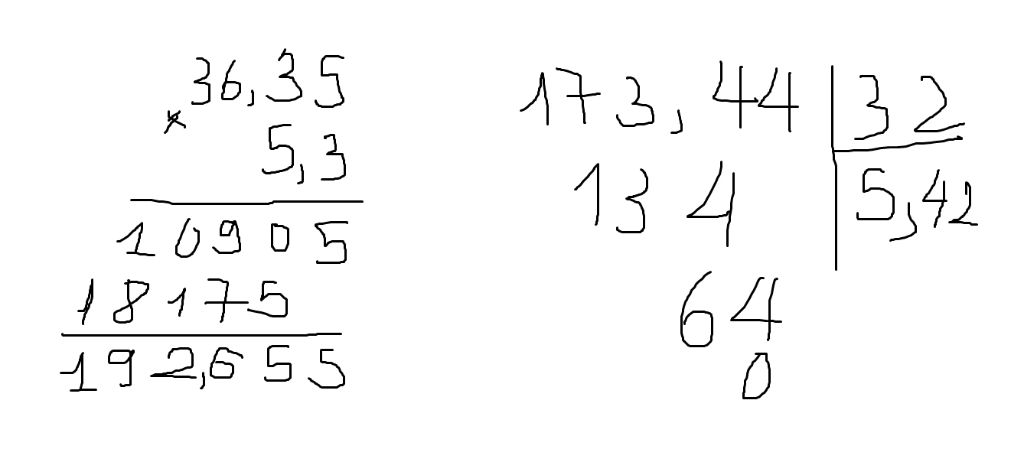 36,35
× 5,3
10905
18175
192,655
173,44 32
134 5,42
64
0